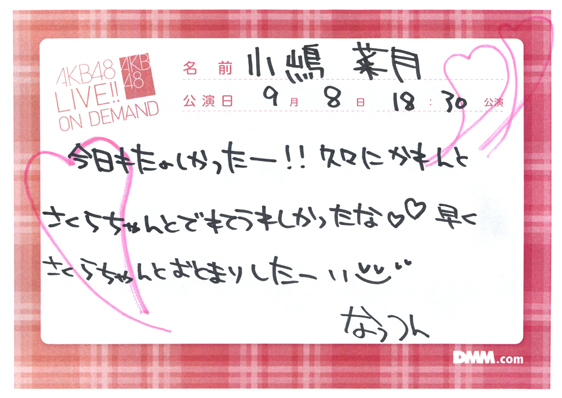 AKB48
LIVE!!
ON DEMAND
AKB
48
名前 小嶋 菜月
公演日 9月 8日 18:30 公演
今日もたのしかったー!! 久々にかれんと
さくらちゃんとでれてうれしかったな♡♡ 早く
さくらちゃんとおとまりしたーいい
なっつん
DMM.com